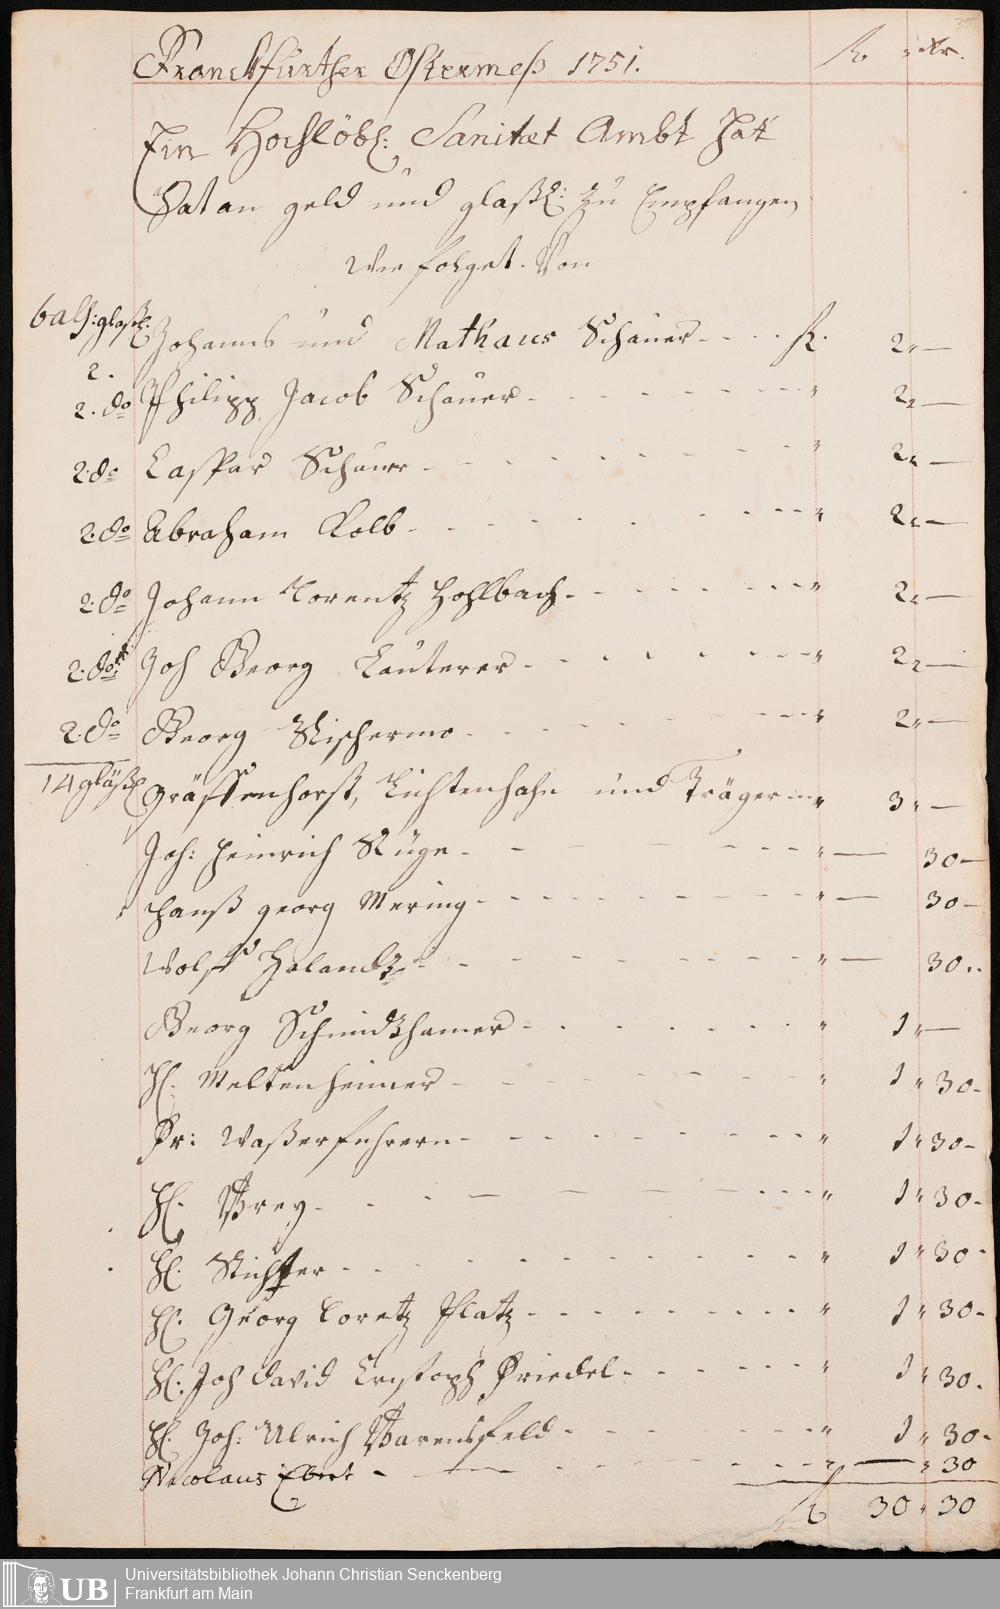 35
Franckfurther Ostermeß 1751. fl. Xr.
Ein Hochlöbl: Sanitæt Ambt hat
Satan geld und glaßl: zu Empfangen
wie folget. Von
bals: glaßl:
2. Johannes und Mathaus Schauer - - - - fl. 2 " —
2. do Philipp Jacob Schauer - - - - " 2 " —
2. do Caspar Schauer - - - - " 2 " —
2. do Abraham Kolb - - - - " 2 " —
2. do Johann Lorentz Hohlbach - - - - " 2 " —
2. do Joh Georg Lauterer - - - - " 2 " —
2. do Georg - - - - " 2 " —
14 gläßl Gräffenhorst, Lichtenhahn und Träger - - " 3 " —
Joh: Heinrich Rüge - - - - " — 30 —
Hanß georg Mering - - - - " — 30 —
Wolff - - - - " — 30 "
Georg - - - - " 1 " —
H. Meltenheimer - - - - " 1 " 30 -
Fr: Waßerfuhrern - - - - " 1 " 30 -
H. Frey - - - - " 1 " 30 -
H. - - - - " 1 " 30 -
H. Georg Loretz Platz - - - - " 1 " 30 -
H. Joh David Cristoph Friedel - - - - " 1 " 30 -
H. Joh: Ulrich Varensfeld - - - - " 1 " 30 -
Nicolaus Ebert - - - - " — " 30
fl 30 " 30
UB Universitätsbibliothek Johann Christian Senckenberg
Frankfurt am Main